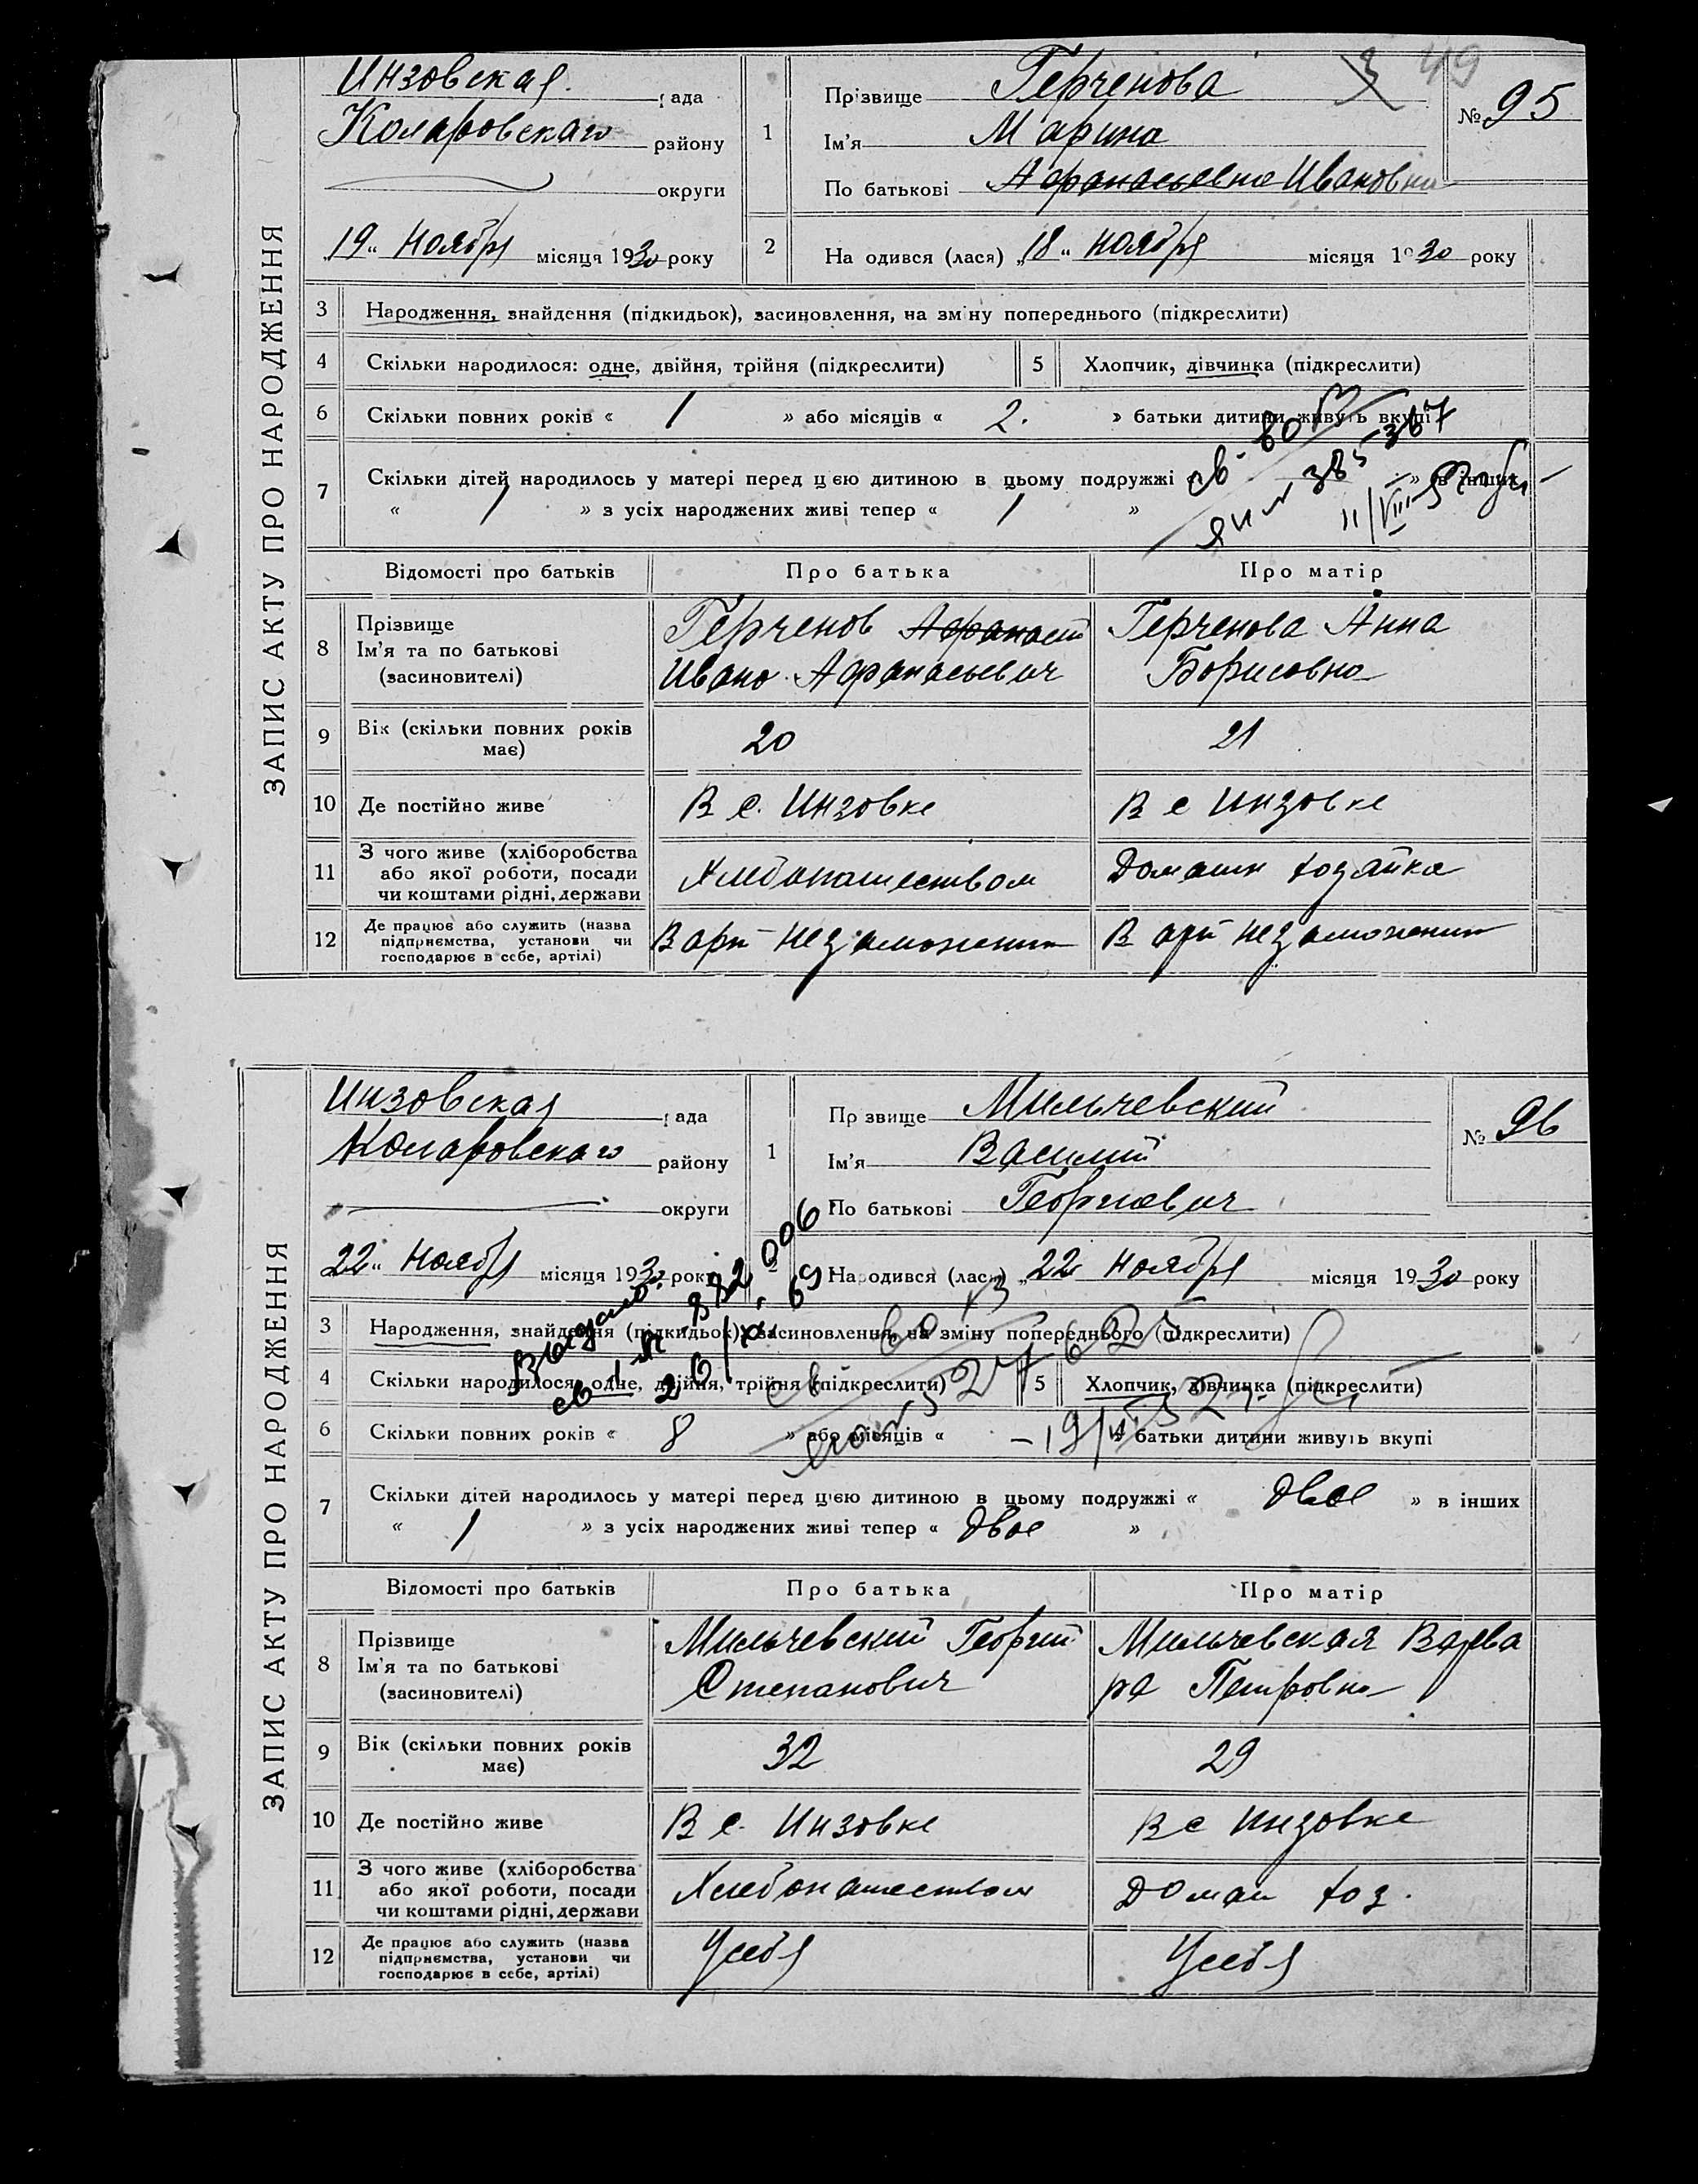 ЗАПИС АКТУ ПРО НАРОДЖЕННЯ
Инзовская рада
Коларовскаго району
округи
„19“ ноября місяця 1930 року
49
1 Прізвище Герченова
Ім'я Марина
По батькові Афанасьевна Ивановна
№ 95
2 На одився (лася) „18“ ноября місяця 1930 року
3 Народження, знайдення (підкидьок), засиновлення, на зміну попереднього (підкреслити)
4 Скільки народилося: одне, двійня, трійня (підкреслити) 5 Хлопчик, дівчинка (підкреслити)
6 Скільки повних років « 1 » або місяців « 2. » батьки дитини живуть вкупі
7 Скільки дітей народилось у матері перед цією дитиною в цьому подружжі « » в інших
« 1 » з усіх народжених живі тепер « 1 »
св-во
385367
11/VIII
Відомості про батьків Про батька Про матір
8 Прізвище Ім'я та по батькові (засиновителі) Герченов Афанасий Герченова Анна
Иван Афанасьевич Борисовна
9 Вік (скільки повних років має) 20 21
10 Де постійно живе В с. Инзовке В с Инзовке
11 З чого живе (хліборобства або якої роботи, посади чи коштами рідні, держави Хлебопашеством Домашн хозайка
12 Де працює або служить (назва підприємства, установи чи господарює в себе, артілі) В арт незаможник В арт незаможник
ЗАПИС АКТУ ПРО НАРОДЖЕННЯ
Инзовская рада
Коларовскаго району
округи
22“ ноября місяця 1930 року
1 Прізвище Мильчевский
Ім'я Василий
По батькові Георгиевич
№ 96
Народився (лася) „22 ноября місяця 1930 року
3 Народження, знайдення (підкидьок), засиновлення, на зміну попереднього (підкреслити)
4 Скільки народилося: одне, двійня, трійня (підкреслити) 5 Хлопчик, дівчинка (підкреслити)
6 Скільки повних років « 8 » або місяців « – » батьки дитини живуть вкупі
7 Скільки дітей народилось у матері перед цією дитиною в цьому подружжі « двое » в інших
« 1 » з усіх народжених живі тепер « двое »
Выдано
882006
Відомості про батьків Про батька Про матір
8 Прізвище Ім'я та по батькові (засиновителі) Мильчевский Георгий Мильчевская Варва
Степанович ра Петровна
9 Вік (скільки повних років має) 32 29
10 Де постійно живе В с. Инзовке В с Инзовке
11 З чого живе (хліборобства або якої роботи, посади чи коштами рідні, держави Хлебопашеством Домаш хоз.
12 Де працює або служить (назва підприємства, установи чи господарює в себе, артілі) У себя У себя